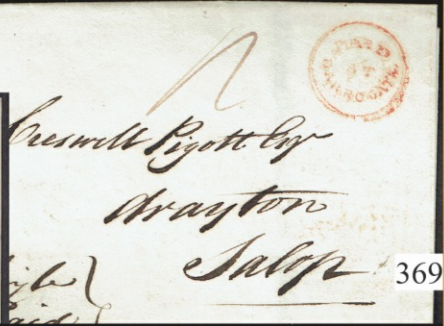 PAID
AT
HARROGATE
Creswell Pigott Esqr
drayton
Salop
369
Paid